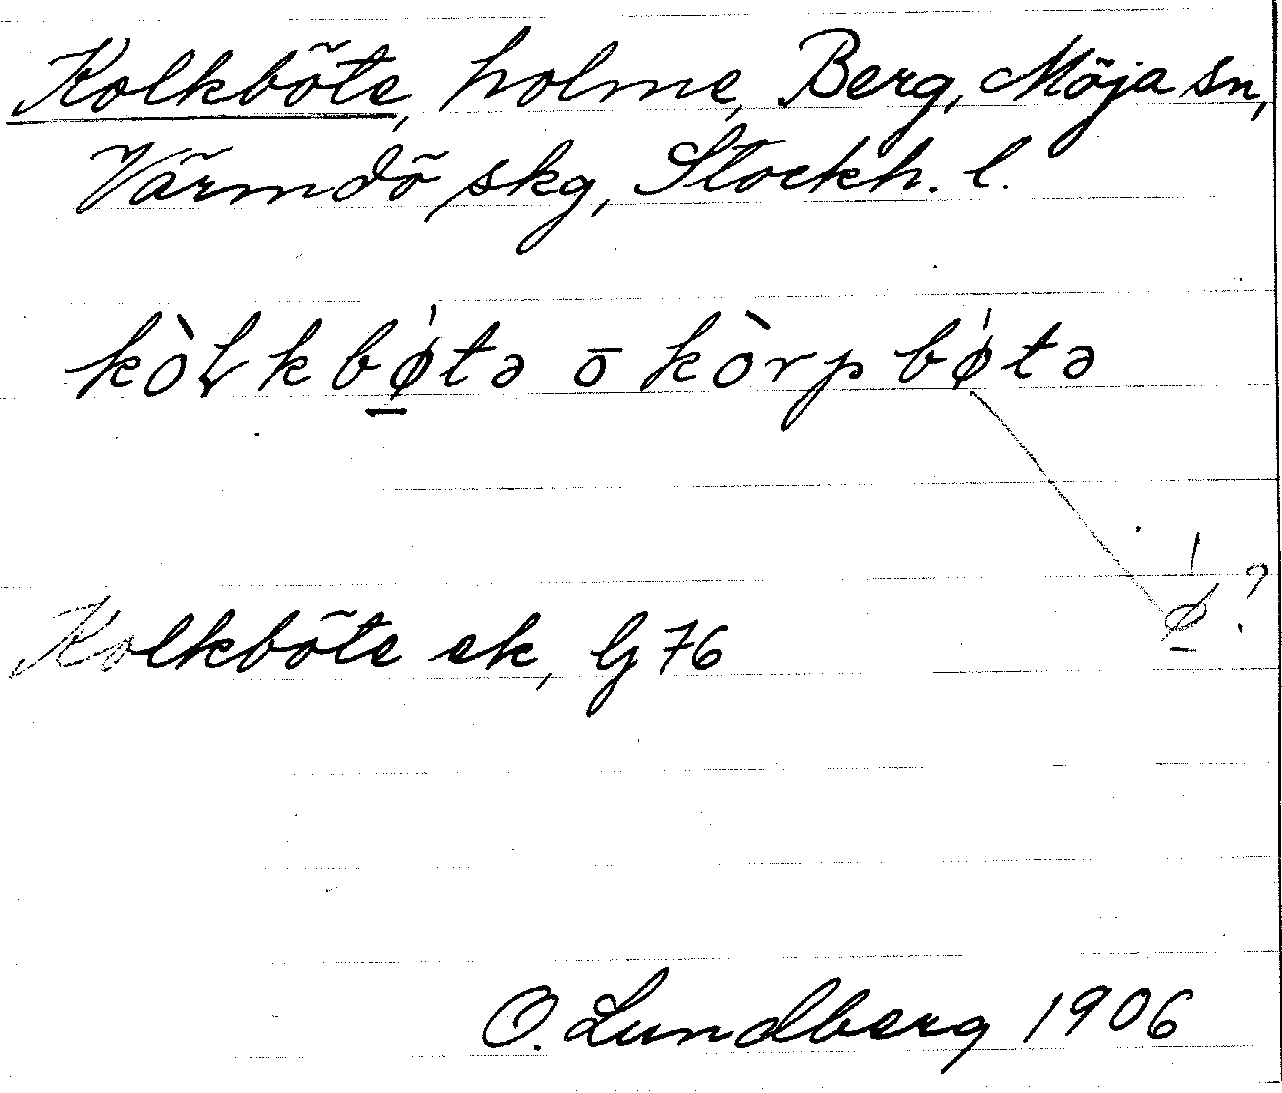 Kolkböte, holme, Berg, Möja sn,
Värmdö skg, Stockh. l.
kòɫkbø̀tə o̅ kòrpbøtə
ǿ̲?
Kolkböte ek, bj 76
O. Lundberg 1906